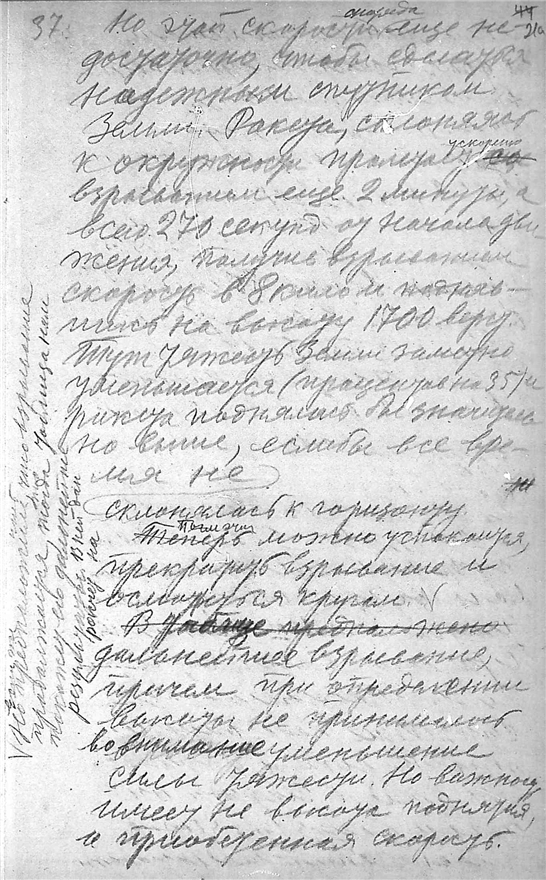 37.
21а
Но этой скорости снаряда еще не-
достаточно, чтобы сделаться
надежным спутником
Земли. Ракета, склоняясь
к окружности, промчась ускоренно
взрыванием еще 2 минуты, а
всего 270 секунд от начала дви
жения, получив взрыванием
скорость в 8 кило и подняв-
шись на высоту 1700 верст.
Тут тяжесть Земли заметно
уменьшается (процентов на 35) и
ракета поднялась бы значитель
но выше, если бы все вре-
мя не
склонялась к горизонту
Теперь можно успокоиться,
прекратить взрывание и
осмотреться кругом. √
В таблице предположено
дальнейшее взрывание,
причем при определении
высоты не принималось
во внимание уменьшение
силы тяжести. Но важность
имеет не высота поднятия,
а приобретенная скорость.
√ Но предположим, что взрывание
продолжается, тогда таблица нам
покажет его дальнейшие
результаты. В ней дан